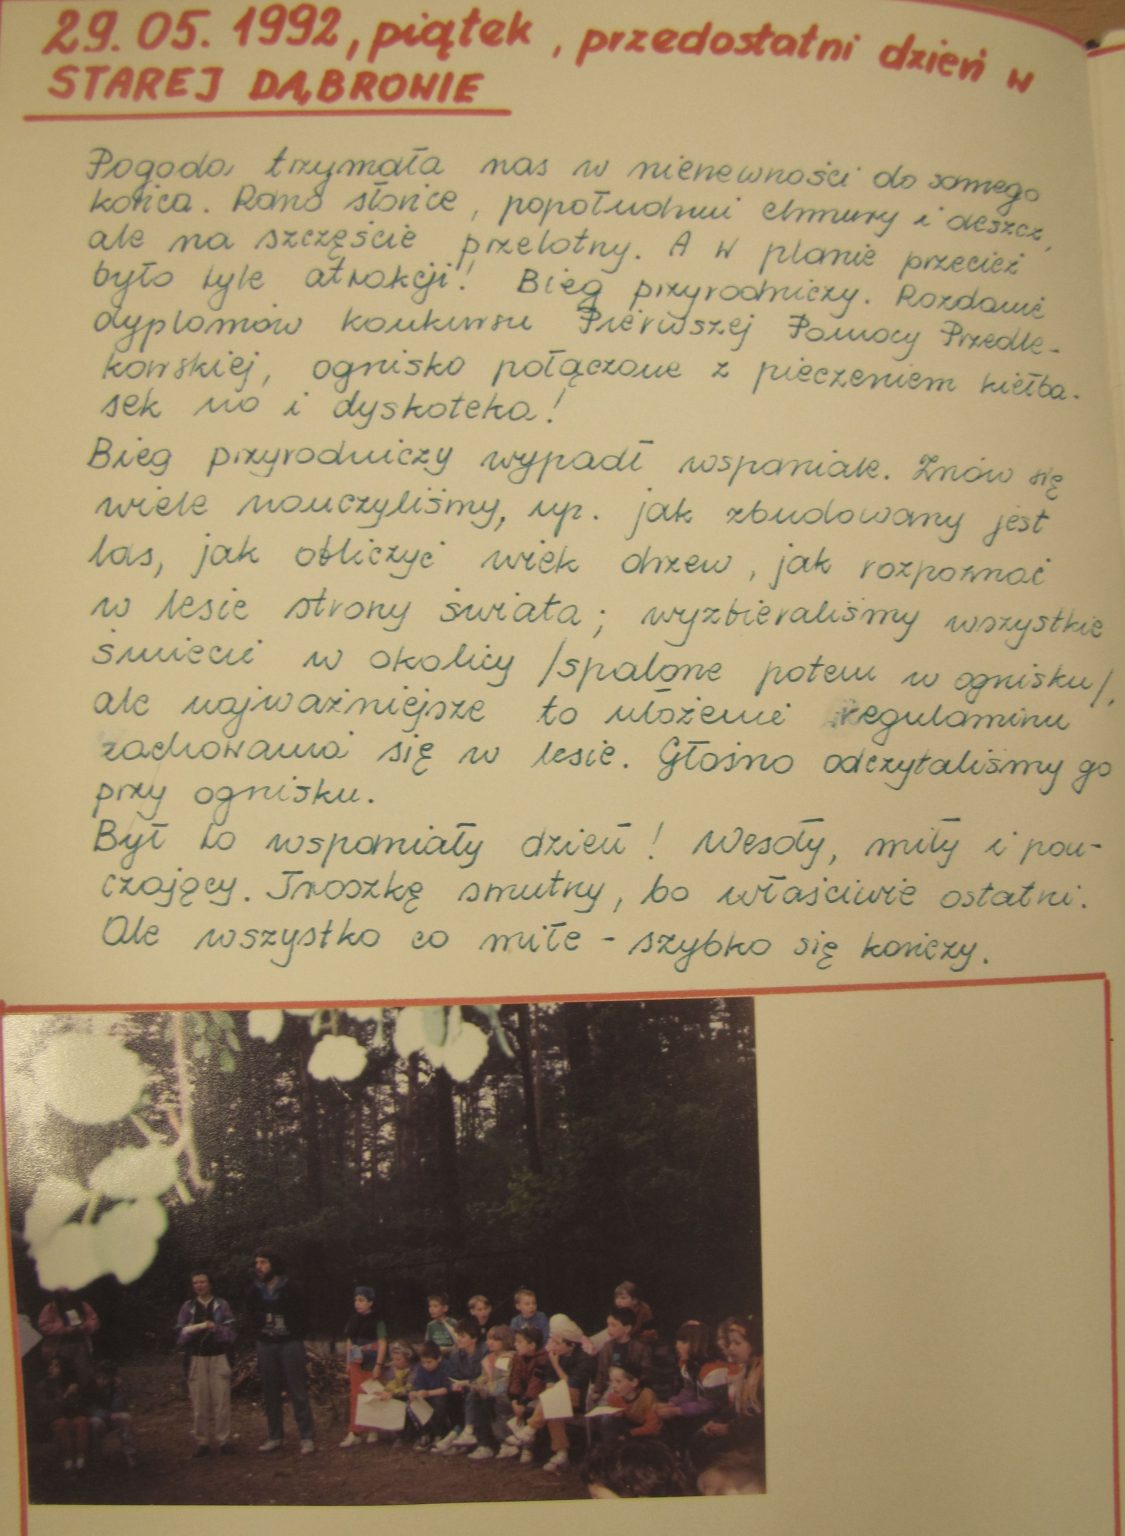 29.05.1992, piątek, przedostatni dzień w
STAREJ DĄBRONIE
Pogoda trzymała nas w niepewności do samego
końca. Rano słońce, popołudniu chmury i deszcz,
ale na szczęście przelotny. A w planie przecież
było tyle atrakcji! Bieg przyrodniczy. Rozdanie
dyplomów konkursu Pierwszej Pomocy Przedle-
karskiej, ognisko połączone z pieczeniem kiełba-
sek no i dyskoteka!
Bieg przyrodniczy wypadł wspaniale. Znów się
wiele nauczyliśmy, np. jak zbudowany jest
las, jak obliczyć wiek drzew, jak rozpoznać
w lesie strony świata; wyzbieraliśmy wszystkie
śmieci w okolicy /spalone potem w ognisku/,
ale najważniejsze to ułożenie regulaminu
zachowania się w lesie. Głośno odczytaliśmy go
przy ognisku.
Był to wspaniały dzień! Wesoły, miły i pou-
czający. Troszkę smutny, bo właściwie ostatni.
Ale wszystko co miłe - szybko się kończy.